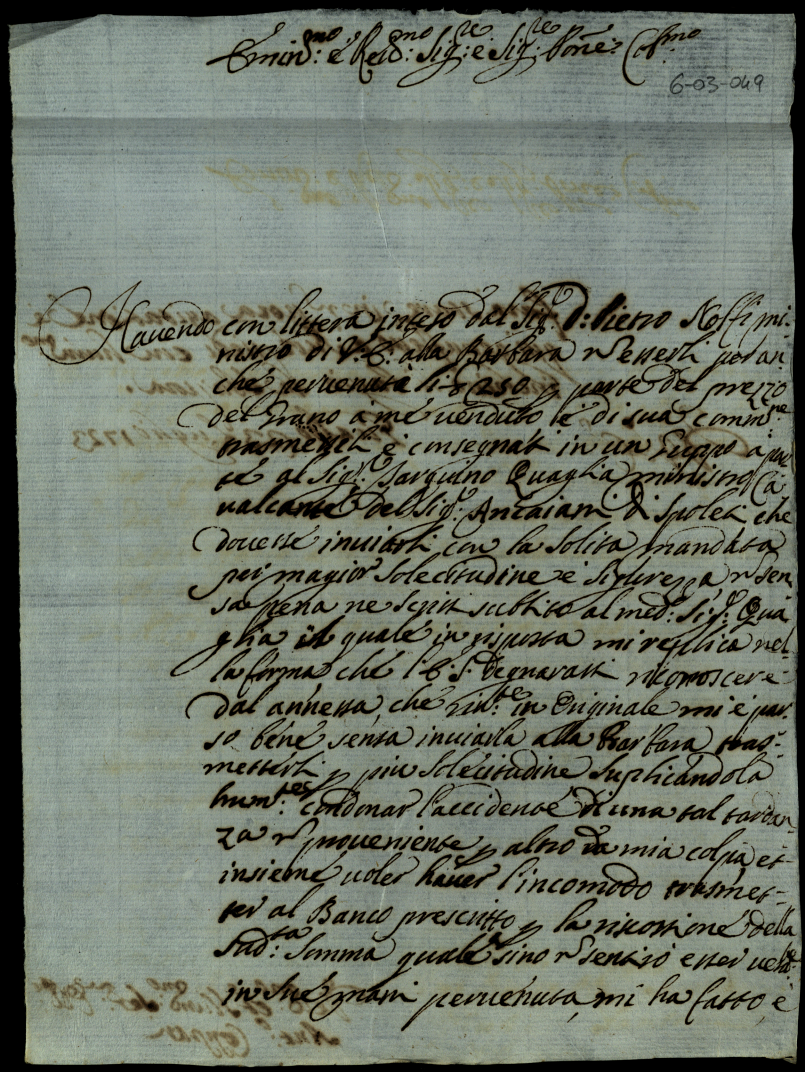 Emin:mo e Reud:mo Sig:re e Sig:re Pone: Col:mo
6-03-049
Hauendo con littera inteso dal Sig:r D: Pietro Nolfi mi-
nistro di V: E: alla Barbara n esserli per an
che peruenuti li 250 parte del prezzo
del Grano a me uenduto e di sua comm:ne
trasmessili e consegnati in un Gruppo a
al Sig:r Quaglia ministro Ca
ualcante del Sig:r Ancaiani di Spoleti che
douesse inuiarli con la solita mandata
per magior solecitudine e sigurezza n sen
sa pena ne scrissi subito al med: Sig:r Qua
glia il quale in risposta mi replica nel-
la forma che l'E: S: degnarassi riconoscere
dal annessa, che in Originale mi è par
so bene sensa inuiarla alla Barbara tras-
metterli più solecitudine suplicandola
hum:tes condonar l'accidente di una tal tardan
za n proueniente altro da mia colpa et
insieme uoler hauer l'incomodo trasmet-
ter al Banco prescritto la riscossione della
sud:ta somma quale sino n sentirò esser
in sue mani peruenuta, mi ha fatto, e